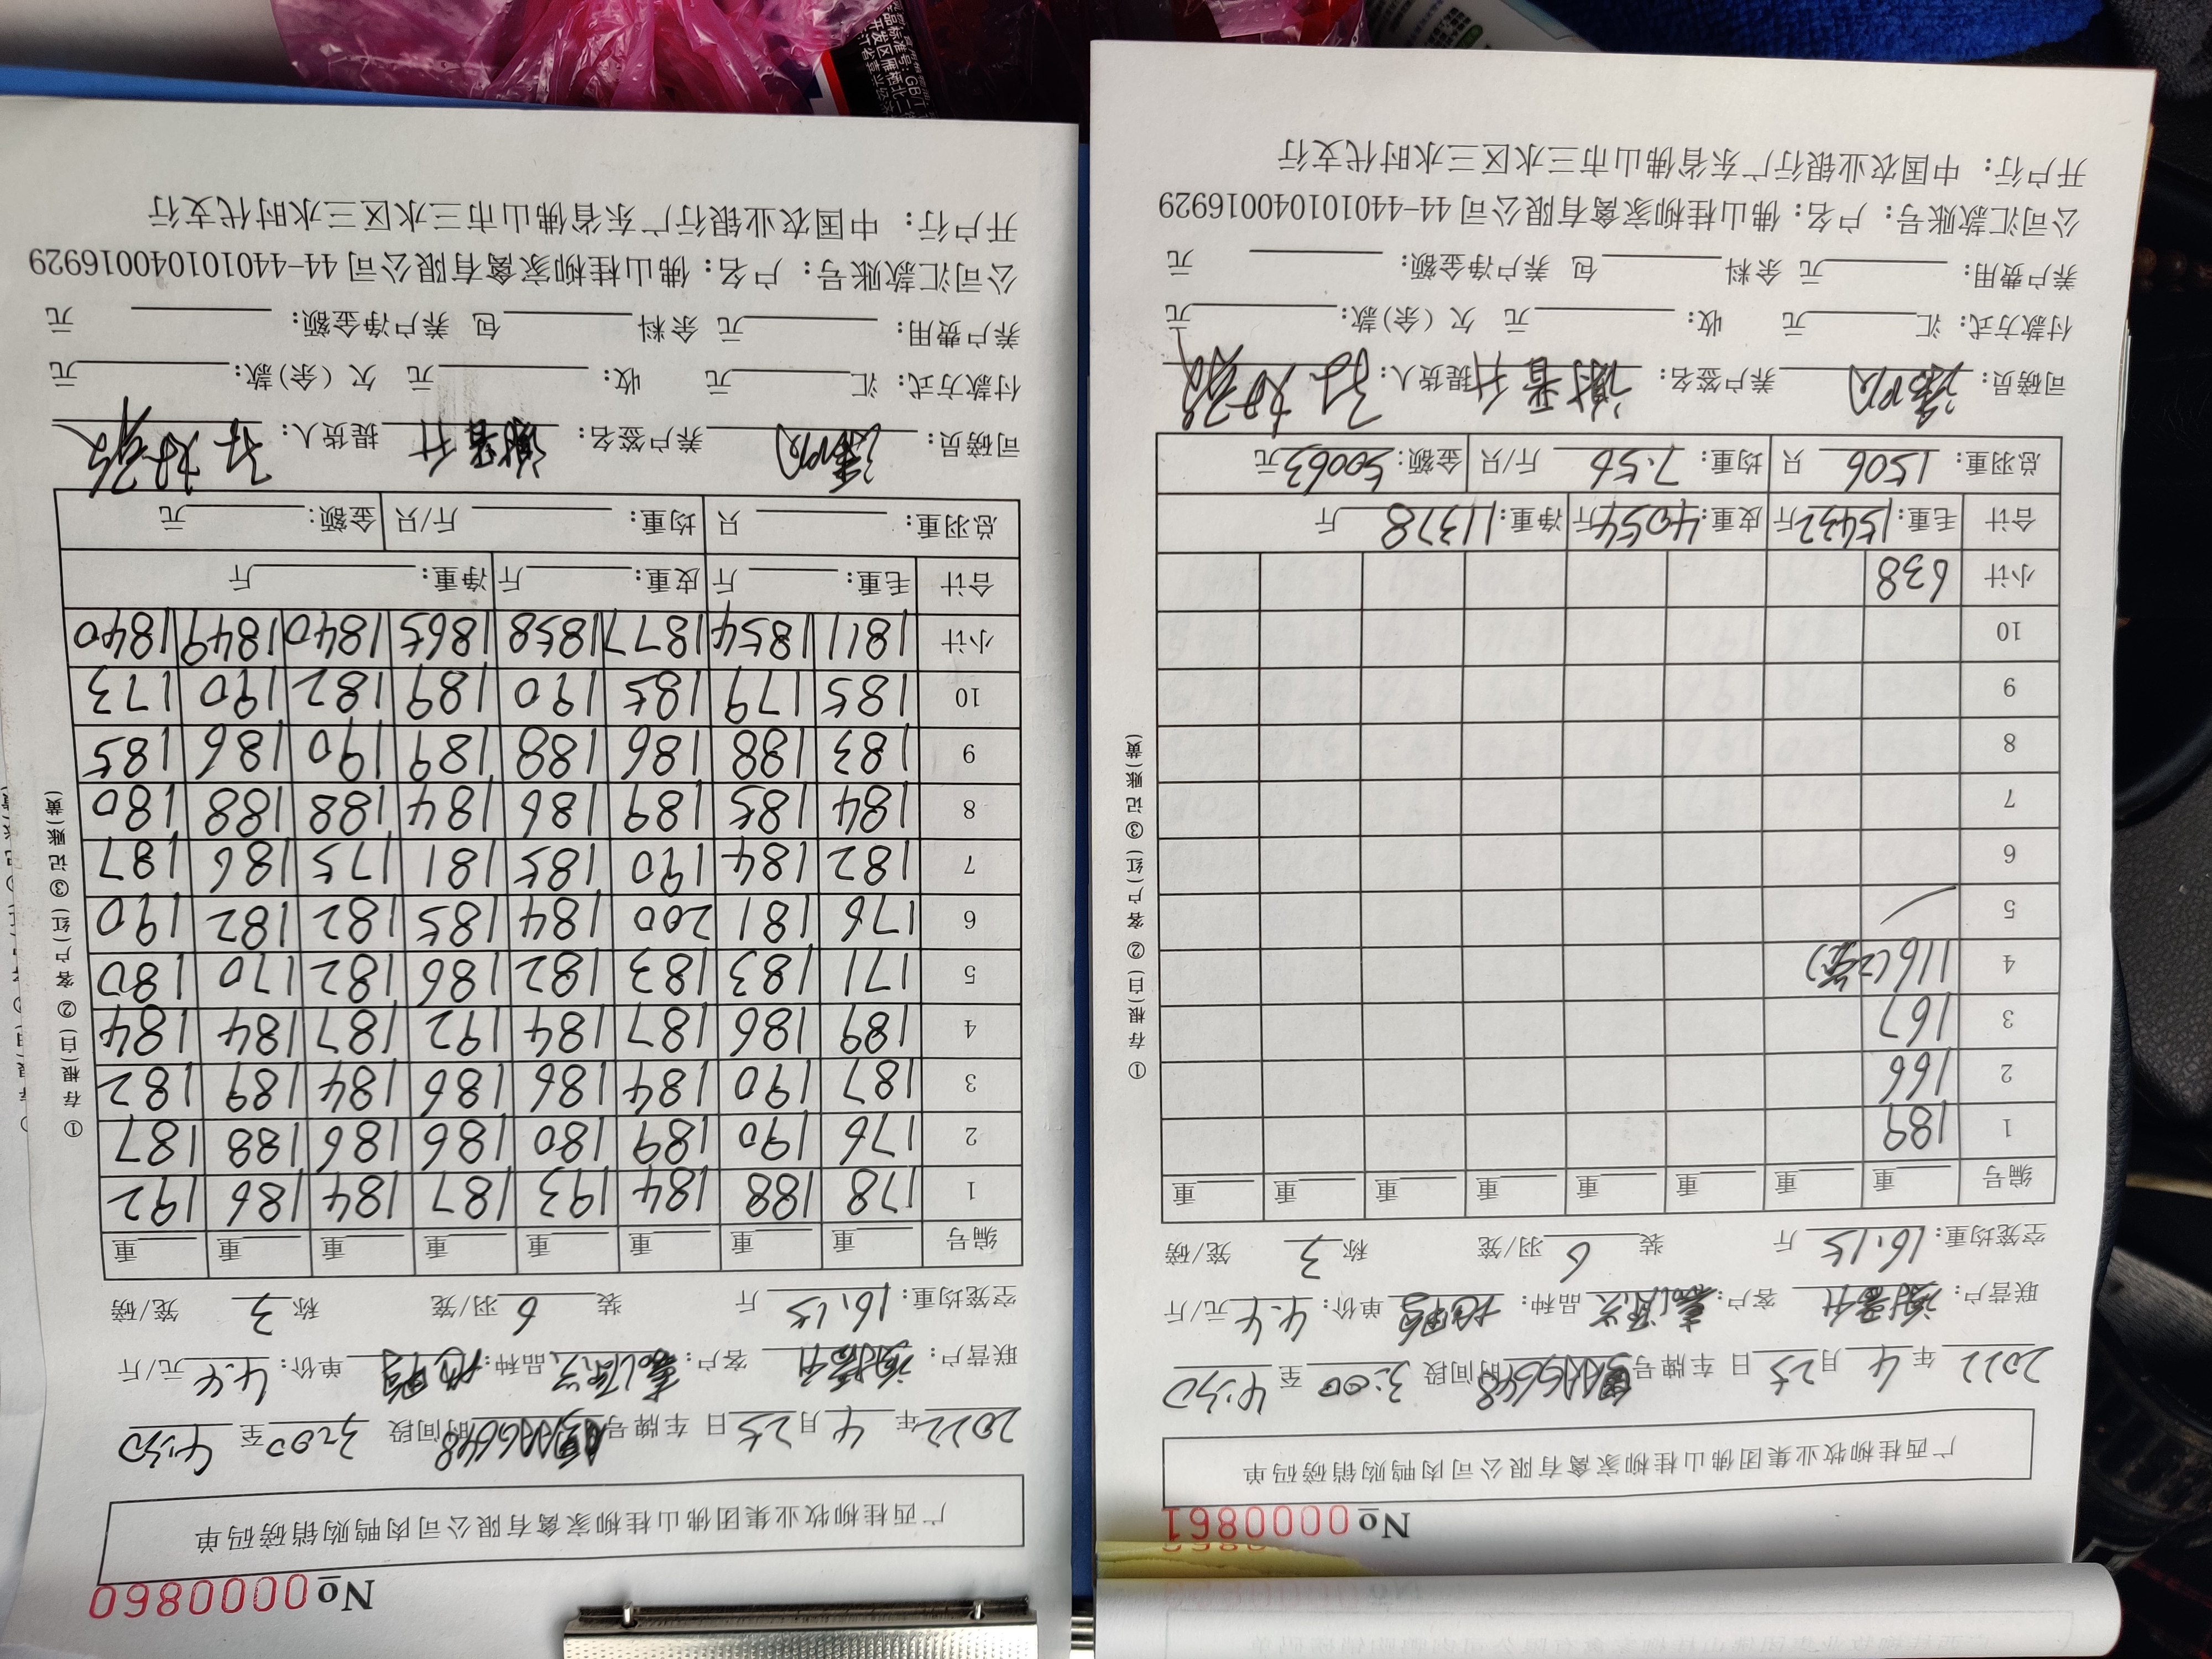 №0000860
广西桂柳牧业集团佛山桂柳家禽有限公司肉鸭购销磅码单
2022年 4月25日 车牌号 时间段 3:00至 4:30
联营户: 客户: 品种: 单价: 4.4元/斤
空笼均重: 16.15斤 装 6羽/笼 称 3笼/磅
编号 重 重 重 重 重 重 重 重
1 178 188 184 193 187 184 186 192
2 176 190 189 180 186 186 188 187
3 187 190 184 186 186 184 189 182
4 189 186 187 184 192 187 184 184
5 171 183 183 182 186 182 170 180
6 176 181 200 184 185 182 182 190
7 182 184 190 185 181 175 186 187
8 184 185 189 186 184 188 188 180
9 183 188 186 188 189 190 186 185
10 185 179 185 190 189 182 190 173
小计 1811 1854 1877 1858 1865 1840 1849 1840
合计 毛重: 斤 皮重: 斤 净重: 斤
总羽重: 只 均重: 斤/只 金额: 元
司磅员: 养户签名: 提货人:
付款方式: 汇 元 收: 元 欠(余)款: 元
养户费用: 元 余料 包 养户净金额: 元
公司汇款账号: 户名: 佛山桂柳家禽有限公司 44-440101040016929
开户行: 中国农业银行广东省佛山市三水区三水时代支行
①存根(白) ②客户(红) ③记账(黄)
№0000861
广西桂柳牧业集团佛山桂柳家禽有限公司肉鸭购销磅码单
2022年 4月25日 车牌号 时间段 3:00至 4:30
联营户: 客户: 品种: 单价: 4.4元/斤
空笼均重: 16.15斤 装 6羽/笼 称 3笼/磅
编号 重 重 重 重 重 重 重 重
1 189
2 166
3 167
4 116(2笼)
5
6
7
8
9
10
小计 638
合计 毛重: 15432斤 皮重: 4054斤 净重: 11378斤
总羽重: 1506只 均重: 7.56斤/只 金额: 50063元
司磅员: 养户签名: 提货人:
付款方式: 汇 元 收: 元 欠(余)款: 元
养户费用: 元 余料 包 养户净金额: 元
公司汇款账号: 户名: 佛山桂柳家禽有限公司 44-440101040016929
开户行: 中国农业银行广东省佛山市三水区三水时代支行
①存根(白) ②客户(红) ③记账(黄)